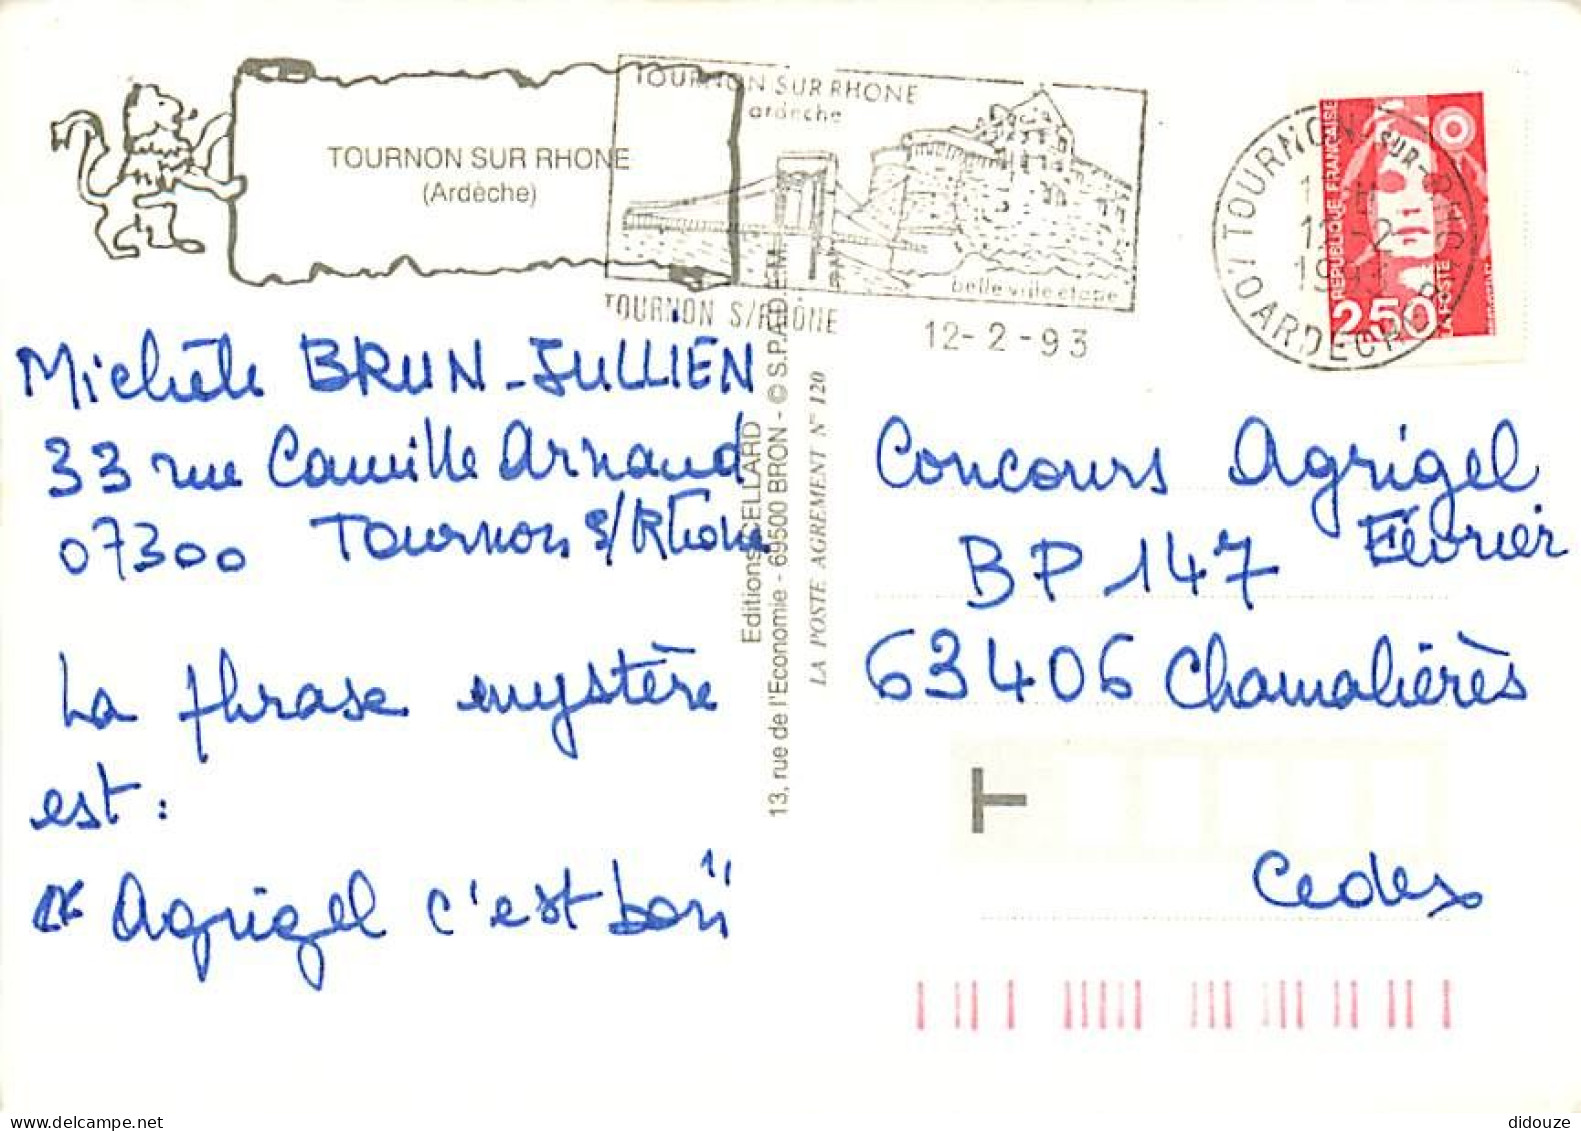 TOURNON SUR RHONE
(Ardèche)
TOURNON SUR RHONE
ardèche
belle ville étape
TOURNON S/RHÔNE
12-2-93
07 TOURNON-SUR-RHO
12-2
1993
ARDECHE
REPUBLIQUE FRANÇAISE
LA POSTE
2,50
Michèle BRUN-JULLIEN
33 rue Camille Arnaud
07300 Tournon s/Rhone
La phrase mystère
est :
"Agrigel c'est bon"
Editions CELLARD
13, rue de l'Economie - 69500 BRON - © S.P.A.D.E.M.
LA POSTE AGREMENT N° 120
Concours Agrigel
Février
BP 147
63406 Chamalières
T
Cedex
didouze